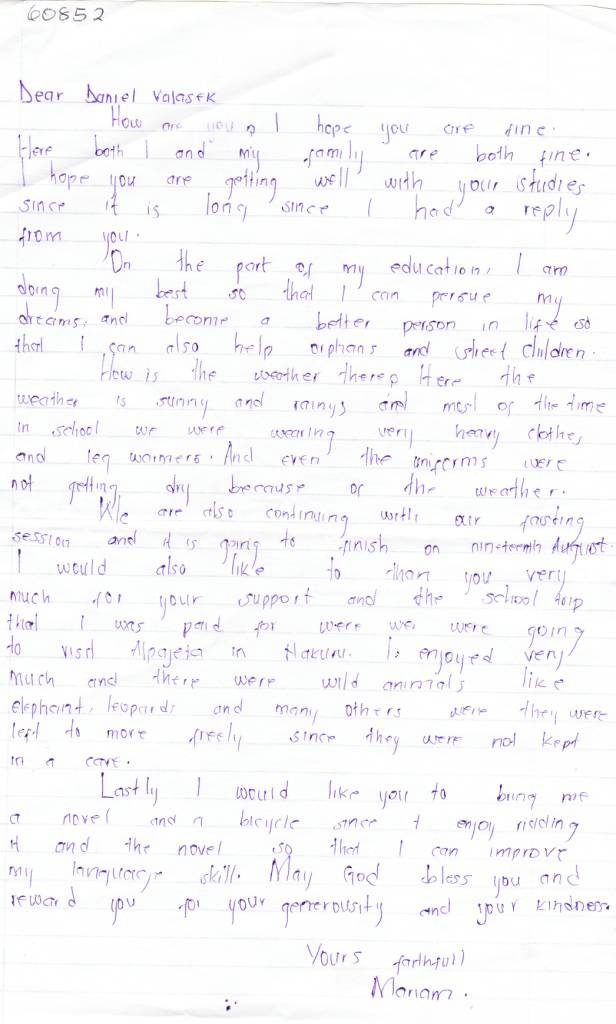 60852
Dear Daniel Valasek
How are you? I hope you are fine.
Here both I and my family are both fine.
I hope you are getting well with your studies
since it is long since I had a reply
from you.
On the part of my education, I am
doing my best so that I can persue my
dreams, and become a better person in life so
that I can also help orphans and street children.
How is the weather there? Here the
weather is sunny and rainys and most of the time
in school we were wearing very heavy clothes
and leg warmers. And even the uniforms were
not getting dry because of the weather.
We are also continuing with our fasting
session and it is going to finish on nineteenth August.
I would also like to than you very
much for your support and the school trip
that I was paid for were we were going
to visit Alpajeta in Nakuru. I enjoyed very
much and there were wild animals like
elephant, leopards and many others were they were
left to more freely since they were not kept
in a cave.
Lastly I would like you to bring me
a novel and a bicycle since I enjoy ridding
it and the novel so that I can improve
my language skill. May God bless you and
reward you for your generousity and your kindness.
Yours faithfull
Mariam.